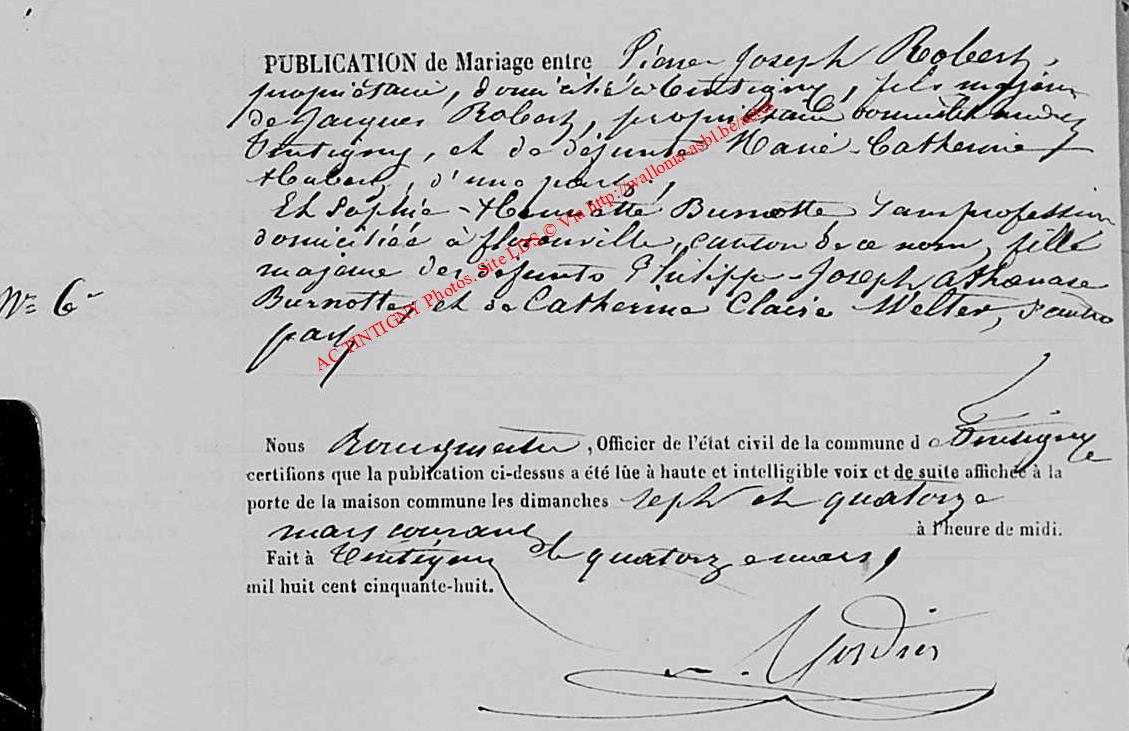 PUBLICATION de Mariage entre Pierre Joseph Robert,
propriétaire, domicilié à Tintigny, fils majeur
de Jacques Robert, propriétaire domicilié audit
Tintigny, et de défunte Marie-Catherine
Hubert, d'une part;
Et Sophie-Henriette Burnotte sans profession
domiciliée à florenville, canton de ce nom, fille
majeure des défunts Philippe-Joseph athanase
Burnotte, et de Catherine Claire Welter, d'autre
part,
Nº 6
Nous Bourgmestre, Officier de l'état civil de la commune de Tintigny
certifions que la publication ci-dessus a été lûe à haute et intelligible voix et de suite affichée à la
porte de la maison commune les dimanches sept et quatorze
mars courant à l'heure de midi.
Fait à Tintigny le quatorze mars,
mil huit cent cinquante-huit.
AC TINTIGNY Photos. Site LDS © Via http://wallonia-asbl.be/actes